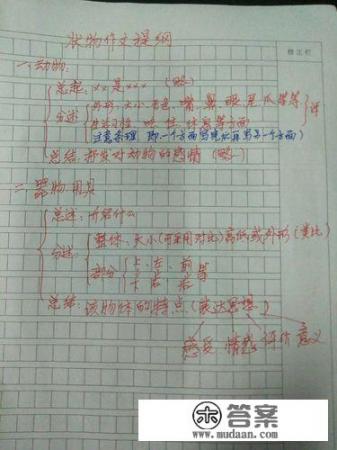 状物作文提纲
一、动物:
总起: xx是xxx (略)
分述
外形、大小、毛色、嘴、鼻、眼、尾、爪等等
生活习性: 吃、住、休息等方面
详
注意条理,即一个方面写完后再写另一个方面
总结: 抒发对动物的感情 (略)
二、器物用具
总述: 介绍什么
分述:
整体: 大小(可采用对比)高低或外形(类比)
部分
上、左、前
下、右、后
等
总结: 该物体的特点 (表达思想)
感受 情感 评价 意义
订正栏
答案
www.mudaan.com